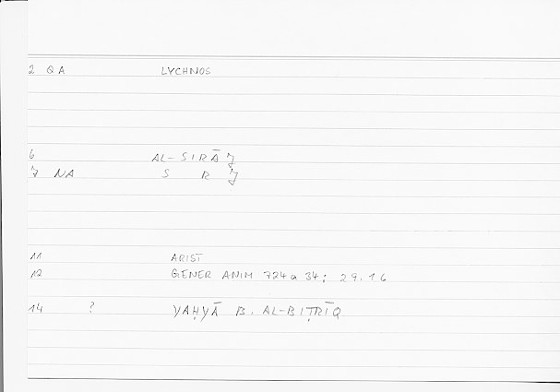 2 QA LYCHNOS
6 AL-SIRĀǦ
7 NA S R Ǧ
11 ARIST
12 GENER ANIM 724a 34; 29.16
14 ? YAḤYĀ B. AL-BIṬRĪQ